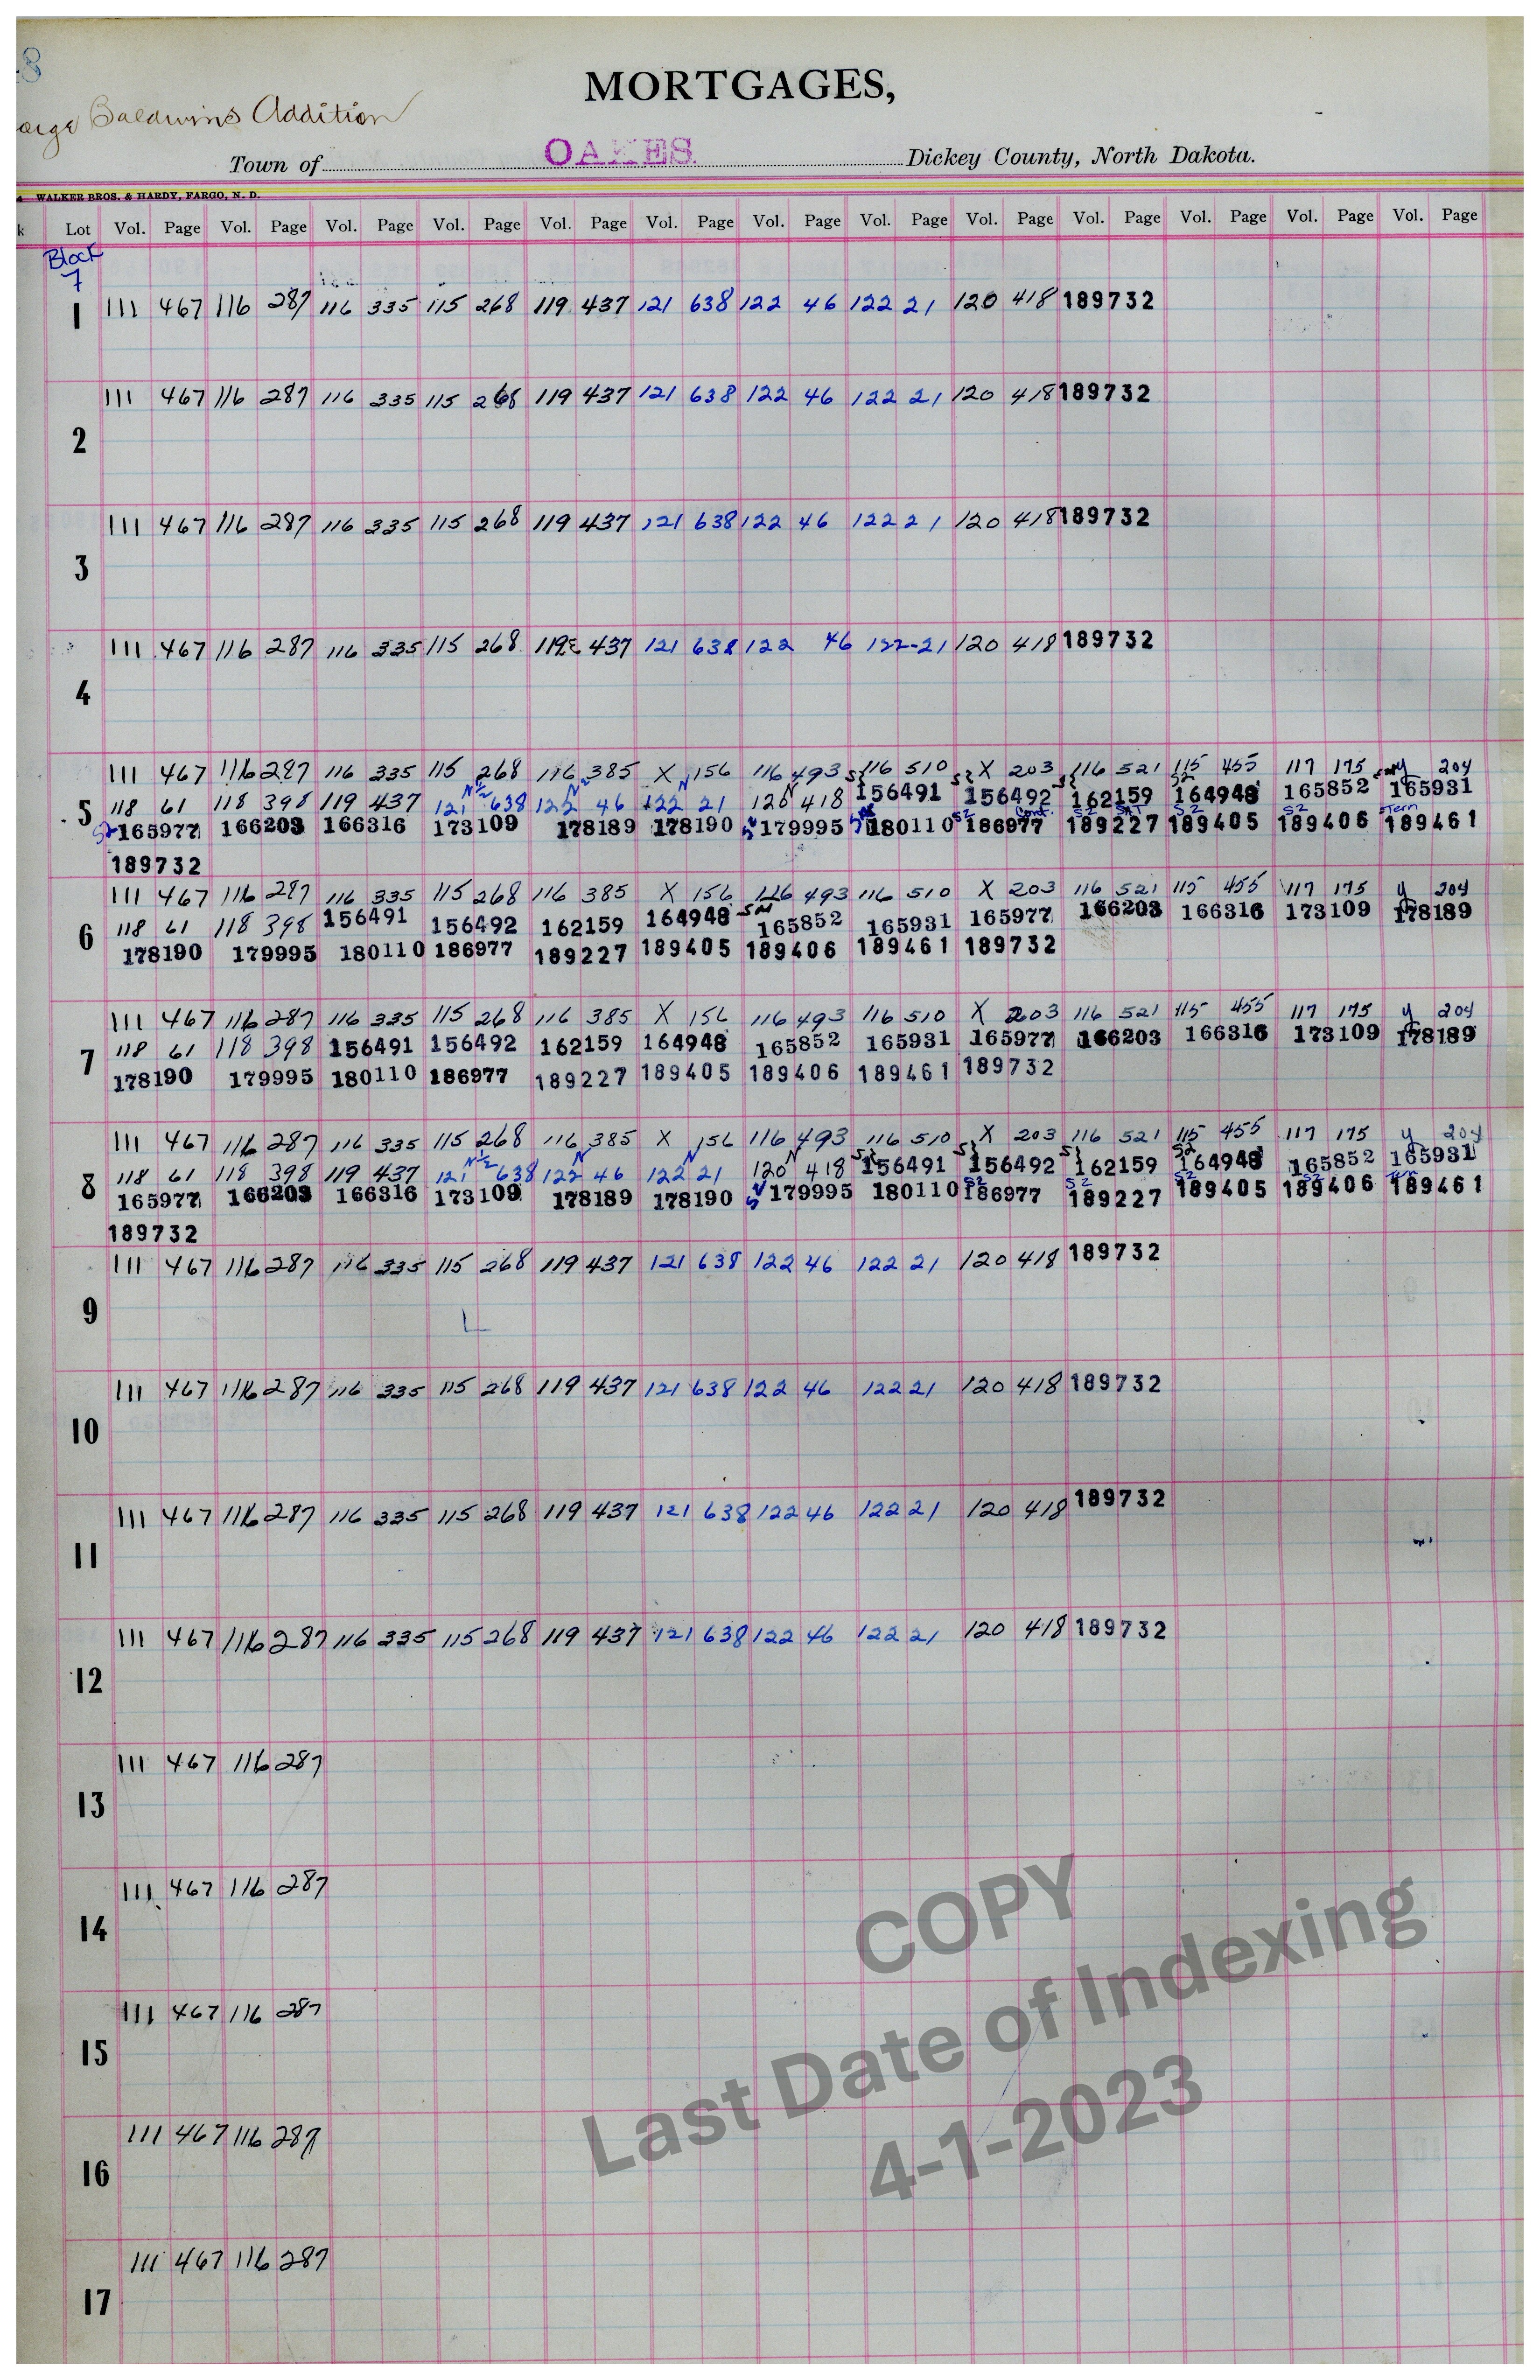 8
MORTGAGES,
Baldwins Addition
Town of OAKES Dickey County, North Dakota.
WALKER BROS. & HARDY, FARGO, N. D.
k Lot Vol. Page Vol. Page Vol. Page Vol. Page Vol. Page Vol. Page Vol. Page Vol. Page Vol. Page Vol. Page Vol. Page Vol. Page Vol. Page
Block
7
1 111 467 116 287 116 335 115 268 119 437 121 638 122 46 122 21 120 418 189732
111 467 116 287 116 335 115 268 119 437 121 638 122 46 122 21 120 418 189732
2
111 467 116 287 116 335 115 268 119 437 121 638 122 46 122 21 120 418 189732
3
111 467 116 287 116 335 115 268 119 437 121 638 122 46 122-21 120 418 189732
4
111 467 116 287 116 335 115 268 116 385 X 156 116 493 116 510 X 203 116 521 115 455 117 175 y 204
N 1/2 N N N S2
5 118 61 118 398 119 437 121 638 122 46 122 21 120 418 156491 156492 162159 164948 165852 165931
S2 Cont. S2 SAT S2 S2 Stern
165977 166203 166316 173109 178189 178190 179995 180110 186977 189227 189405 189406 189461
189732
111 467 116 287 116 335 115 268 116 385 X 156 116 493 116 510 X 203 116 521 115 455 117 175 y 204
6 118 61 118 398 156491 156492 162159 164948 165852 165931 165977 166203 166316 173109 178189
178190 179995 180110 186977 189227 189405 189406 189461 189732
111 467 116 287 116 335 115 268 116 385 X 156 116 493 116 510 X 203 116 521 115 455 117 175 y 204
7 118 61 118 398 156491 156492 162159 164948 165852 165931 165977 166203 166316 173109 178189
178190 179995 180110 186977 189227 189405 189406 189461 189732
111 467 116 287 116 335 115 268 116 385 X 156 116 493 116 510 X 203 116 521 115 455 117 175 y 204
N 1/2 N N N S2
8 118 61 118 398 119 437 121 638 122 46 122 21 120 418 156491 156492 162159 164948 165852 165931
S2 S2 S2 S2
165977 166203 166316 173109 178189 178190 179995 180110 186977 189227 189405 189406 189461
189732
111 467 116 287 116 335 115 268 119 437 121 638 122 46 122 21 120 418 189732
9
111 467 116 287 116 335 115 268 119 437 121 638 122 46 122 21 120 418 189732
10
111 467 116 287 116 335 115 268 119 437 121 638 122 46 122 21 120 418 189732
11
111 467 116 287 116 335 115 268 119 437 121 638 122 46 122 21 120 418 189732
12
111 467 116 287
13
111 467 116 287
14
111 467 116 287
15
111 467 116 287
16
111 467 116 287
17
COPY
Last Date of Indexing
4-1-2023